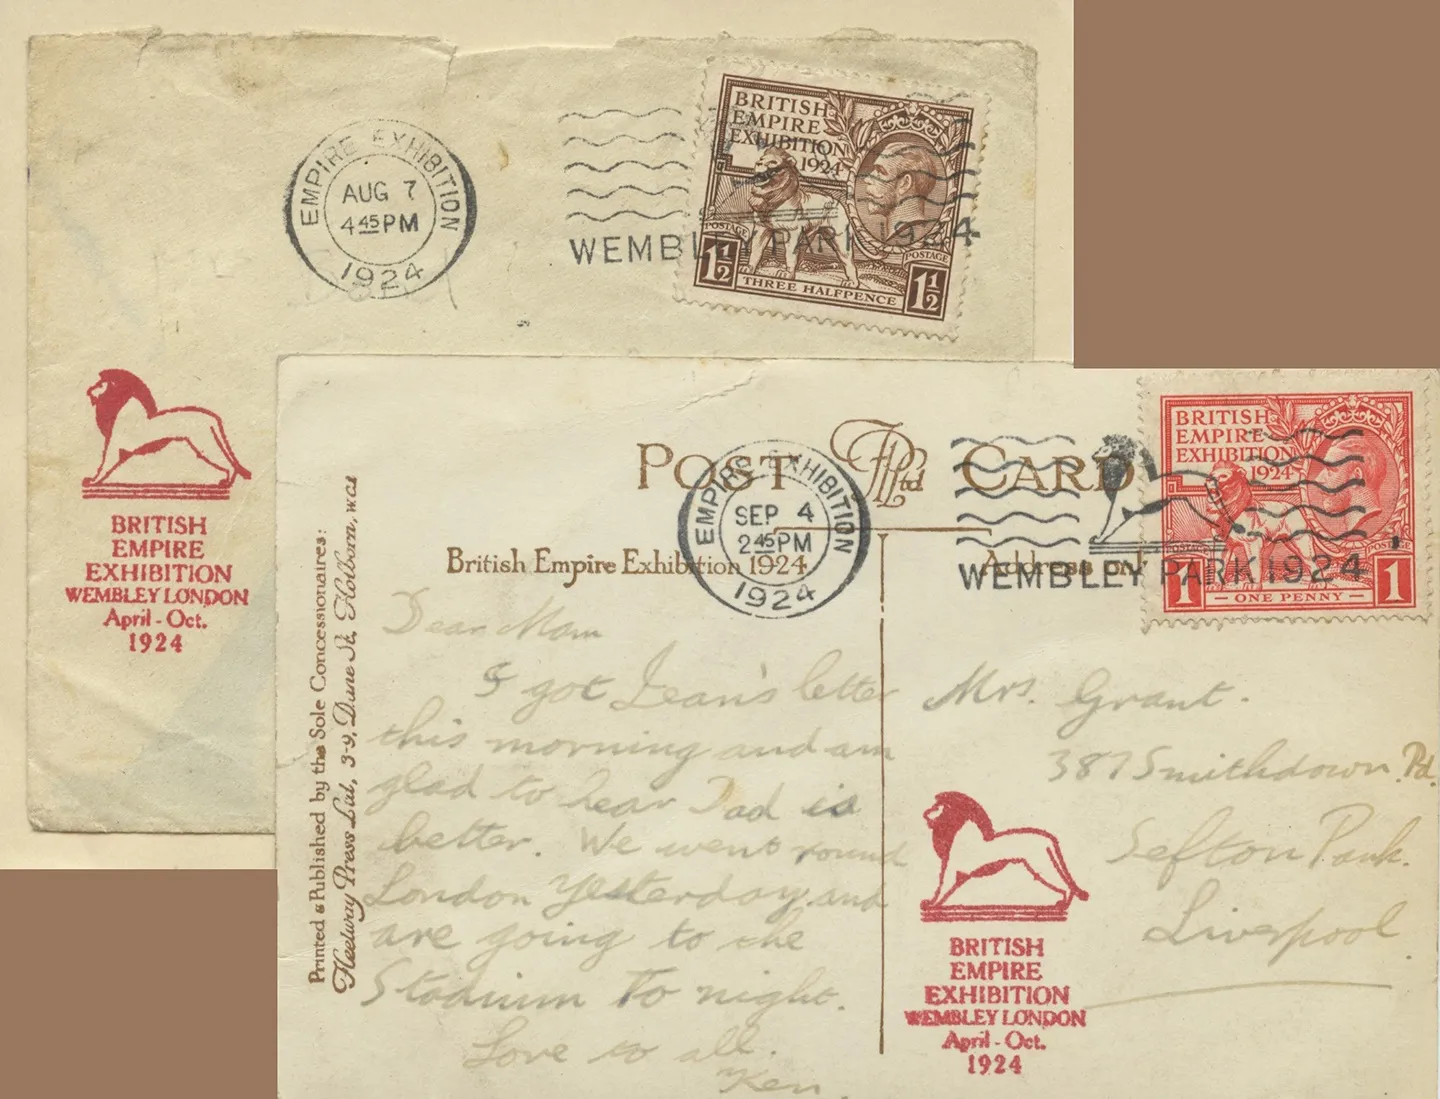 EMPIRE EXHIBITION
AUG 7
4 45 PM
1924
WEMBLEY PARK 1924
BRITISH
EMPIRE
EXHIBITION
1924
POSTAGE
POSTAGE
1 1/2
THREE HALFPENCE
1 1/2
BRITISH
EMPIRE
EXHIBITION
WEMBLEY LONDON
April - Oct.
1924
POST CARD
British Empire Exhibition 1924
EMPIRE EXHIBITION
SEP 4
2 45 PM
1924
WEMBLEY PARK 1924
BRITISH
EMPIRE
EXHIBITION
1924
POSTAGE
POSTAGE
1
— ONE PENNY —
1
Printed & Published by the Sole Concessionaires:
Fleetway Press Ltd., 3-9, Dane St., Holborn, W.C.1
Dear Mam
I got Jean's letter
this morning and am
glad to hear Dad is
better. We went round
London Yesterday and
are going to the
Stadium To night.
Love to all.
Ken
Mrs. Grant.
387 Smithdown Rd.
Sefton Park.
Liverpool.
BRITISH
EMPIRE
EXHIBITION
WEMBLEY LONDON
April - Oct.
1924